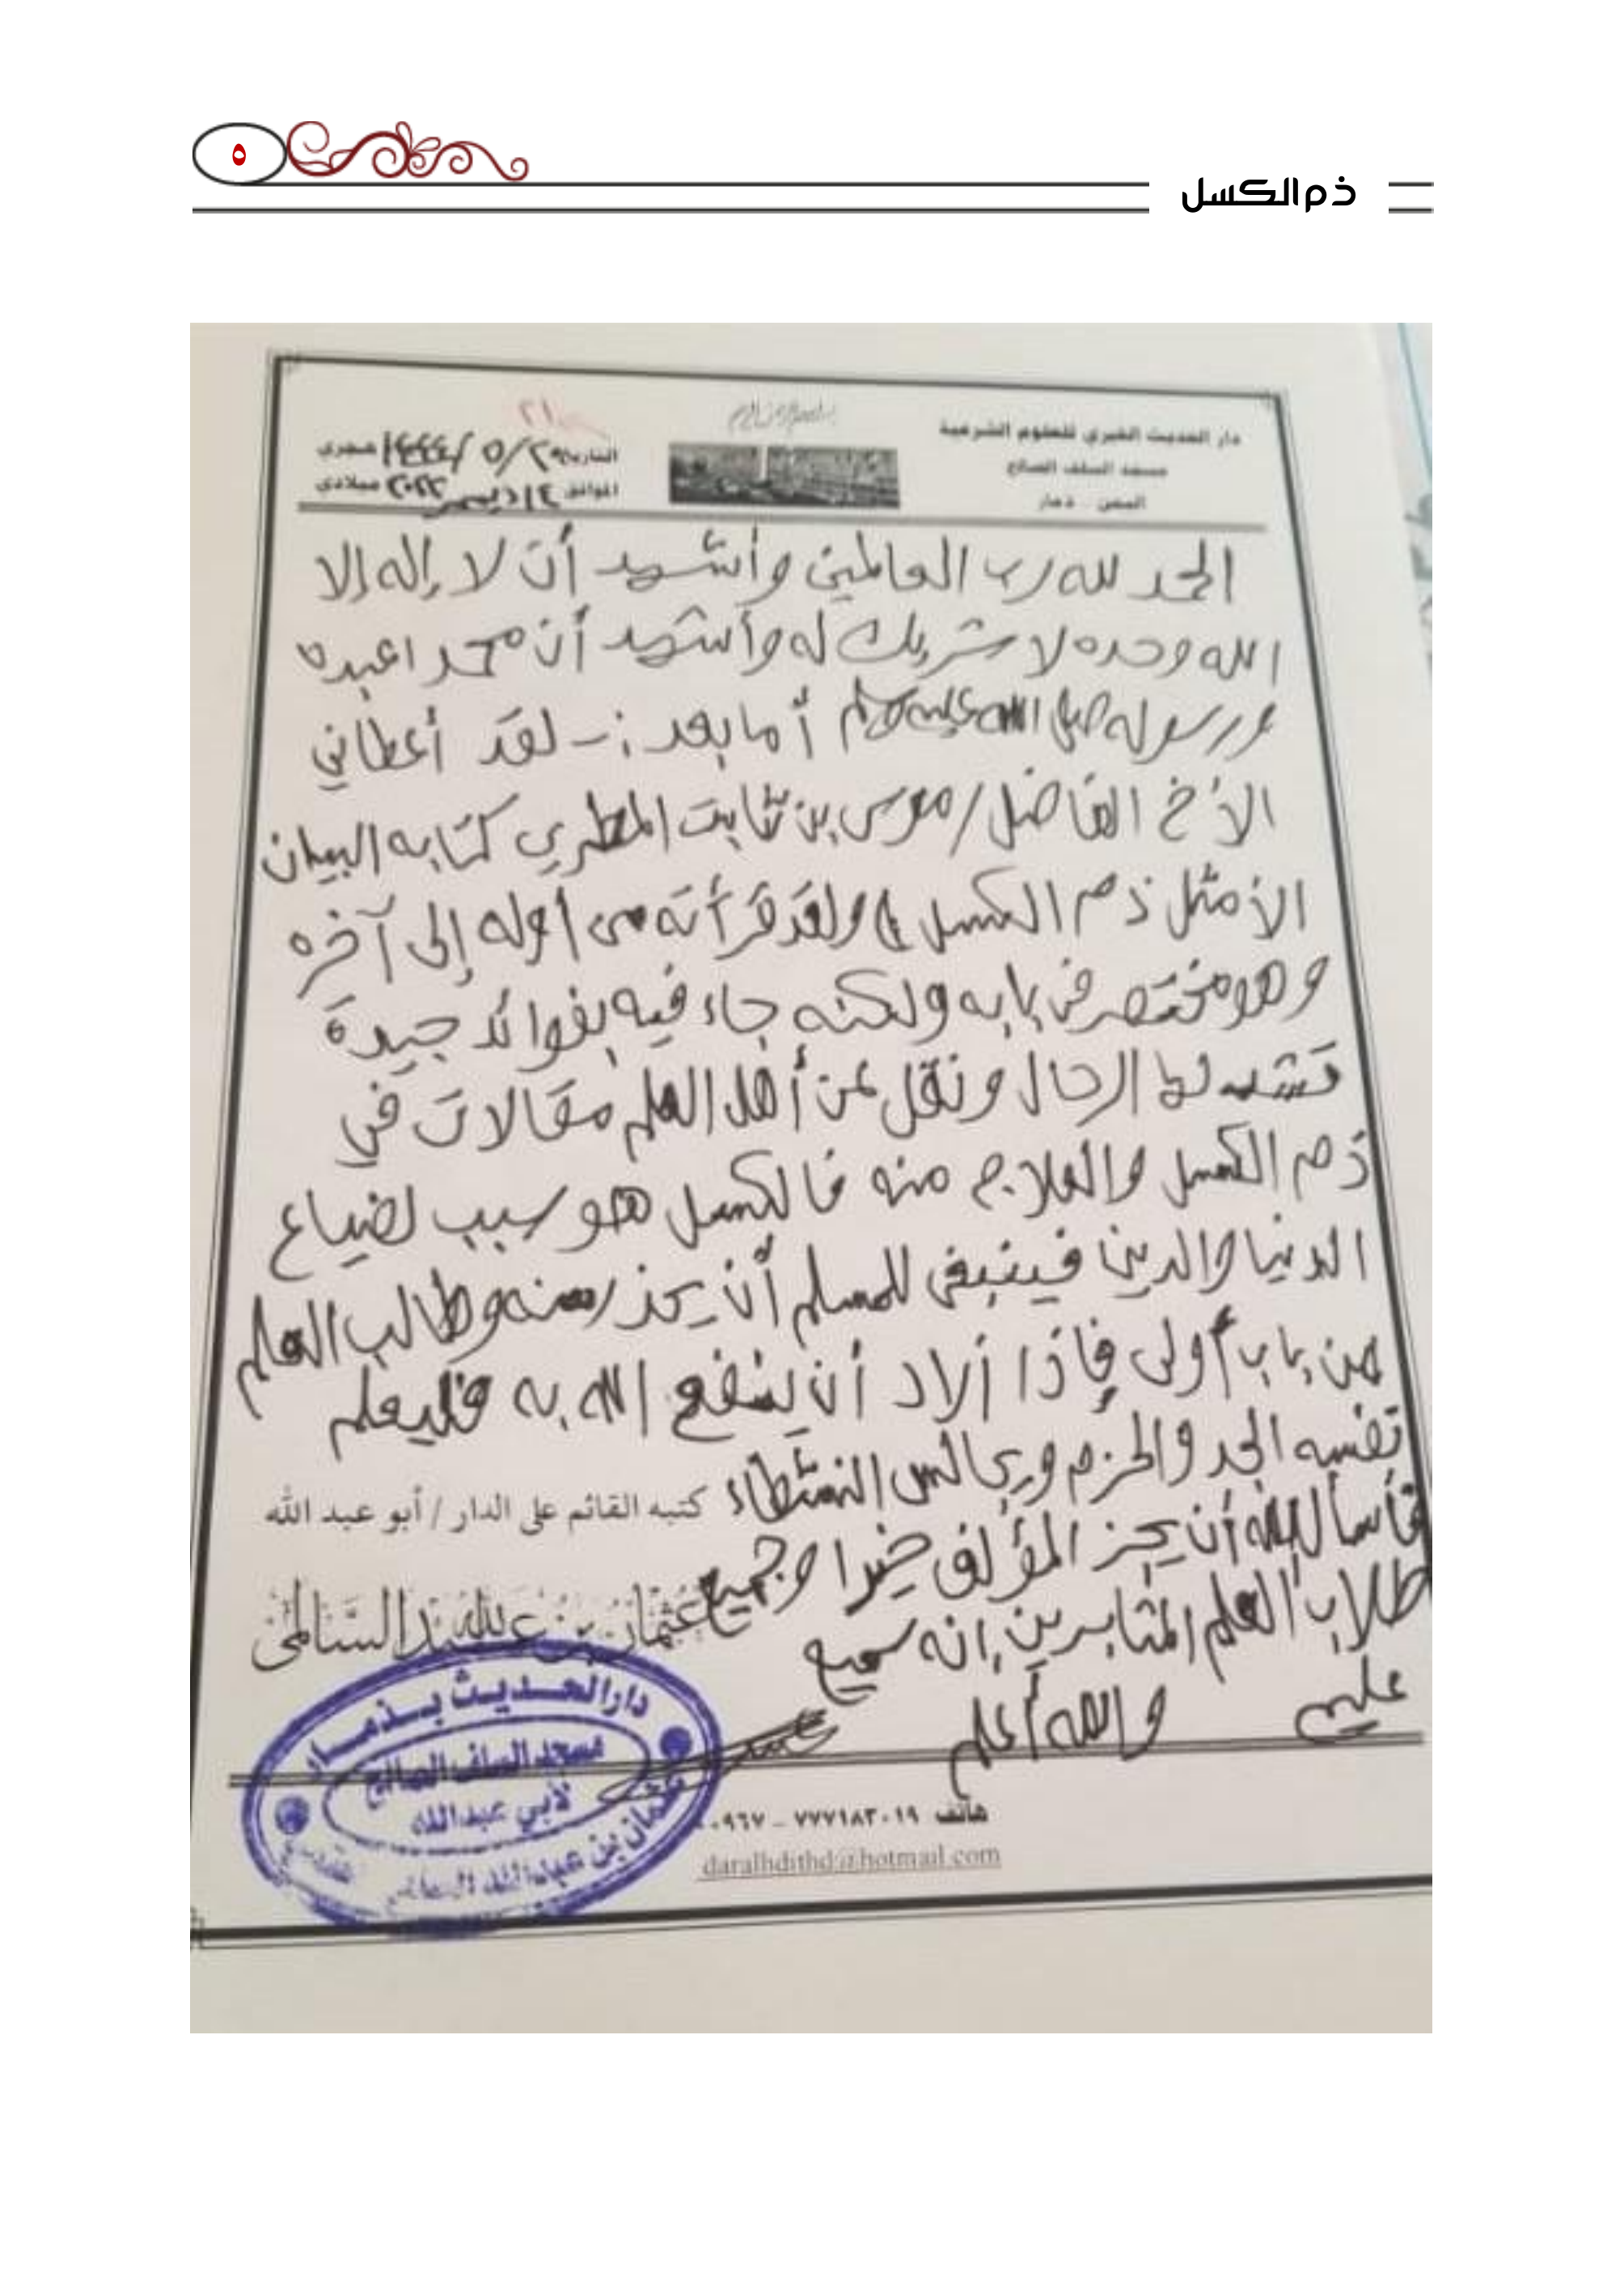 ٥
ذم الكسل
دار الحديث الخيري للعلوم الشرعية
مسجد السلف الصالح
اليمن - ذمار
التاريخ ٢٠ / ٥ / ١٤٤٤ هجري
الموافق ١٤ ديسمبر ٢٠٢٢ ميلادي
الحمد لله رب العالمين وأشهد أن لا إله إلا
الله وحده لا شريك له وأشهد أن محمدا عبده
ورسوله صلى الله عليه وسلم أما بعد :- لقد أعطاني
الأخ الفاضل / موسى بن ثابت المطري كتابه البيان
الأمثل ذم الكسل ) ولقد قرأته من أوله إلى آخره
وهو مختصر في بابه ولكنه جاء فيه بفوائد جيدة
تشد لها الرحال ونقل عن أهل العلم مقالات في
ذم الكسل والعلاج منه فالكسل هو سبب لضياع
الدنيا والدين فينبغي للمسلم أن يحذر منه وطالب العلم
من باب أولى فإذا أراد أن ينفع الله به فليعلم
نفسه الجد والحزم ويجالس النشطاء
كتبه القائم على الدار / أبو عبد الله
فأسأل الله أن يجز المؤلف خيرا وجميع
طلاب العلم المثابرين إنه سميع
عثمان بن عبد الله السالمي
عليم والله أعلم
دار الحديث بذمار
مسجد السلف الصالح
لأبي عبدالله
عثمان بن عبدالله السالمي
هاتف ٧٧٧١٨٣٠١٩ - ٠٠٩٦٧
daralhdithd@hotmail.com